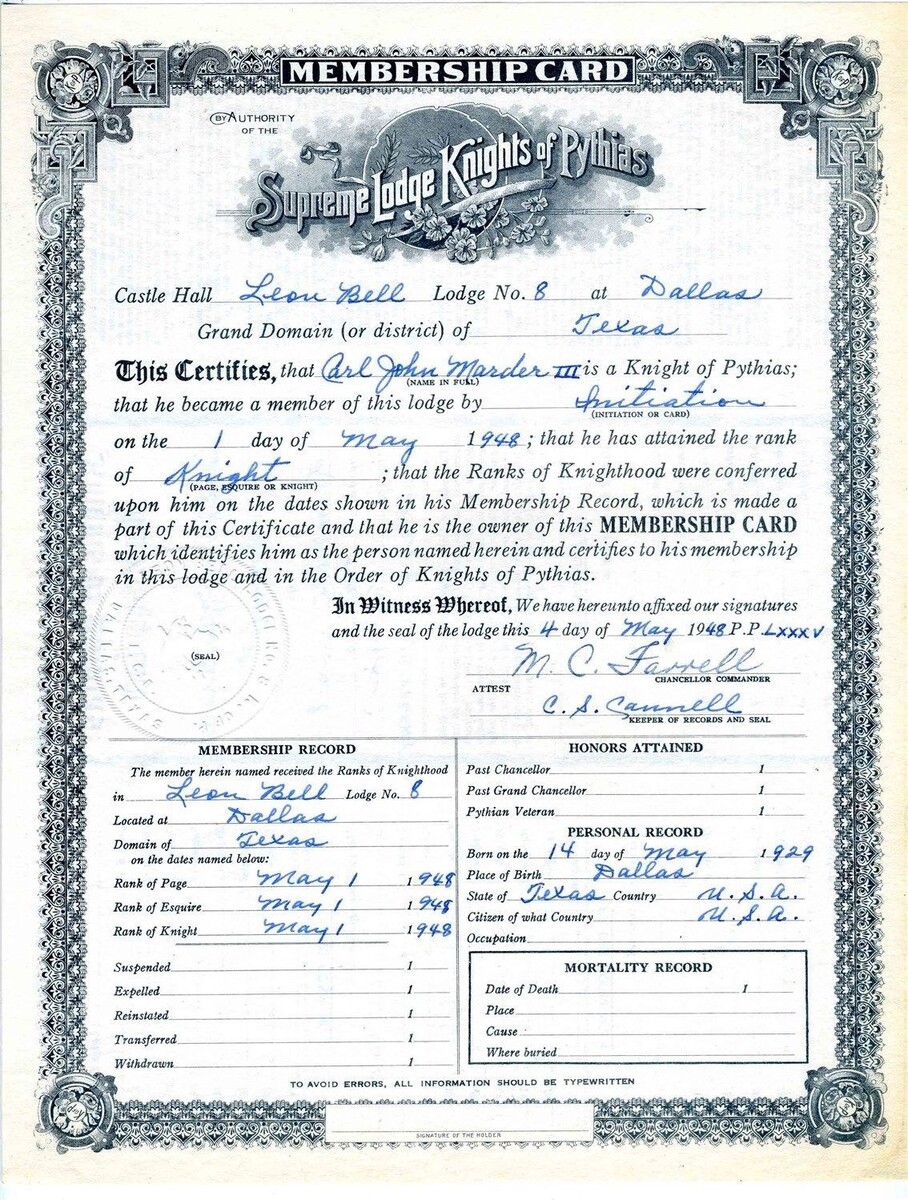 MEMBERSHIP CARD
BY AUTHORITY
OF THE
Supreme Lodge Knights of Pythias
Castle Hall Leon Bell Lodge No. 8 at Dallas
Grand Domain (or district) of Texas
This Certifies, that Carl John Marder III is a Knight of Pythias;
(NAME IN FULL)
that he became a member of this lodge by Initiation
(INITIATION OR CARD)
on the 1 day of May 1948; that he has attained the rank
of Knight ; that the Ranks of Knighthood were conferred
(PAGE, ESQUIRE OR KNIGHT)
upon him on the dates shown in his Membership Record, which is made a
part of this Certificate and that he is the owner of this MEMBERSHIP CARD
which identifies him as the person named herein and certifies to his membership
in this lodge and in the Order of Knights of Pythias.
In Witness Whereof, We have hereunto affixed our signatures
and the seal of the lodge this 4 day of May 1948 P.P. LXXXV
(SEAL)
M. C. Farrell
CHANCELLOR COMMANDER
ATTEST
C. S. Cannell
KEEPER OF RECORDS AND SEAL
MEMBERSHIP RECORD
The member herein named received the Ranks of Knighthood
in Leon Bell Lodge No. 8
Located at Dallas
Domain of Texas
on the dates named below:
Rank of Page May 1 1948
Rank of Esquire May 1 1948
Rank of Knight May 1 1948
Suspended 1
Expelled 1
Reinstated 1
Transferred 1
Withdrawn 1
HONORS ATTAINED
Past Chancellor 1
Past Grand Chancellor 1
Pythian Veteran 1
PERSONAL RECORD
Born on the 14 day of May 1929
Place of Birth Dallas
State of Texas Country U.S.A.
Citizen of what Country U.S.A.
Occupation
MORTALITY RECORD
Date of Death 1
Place
Cause
Where buried
TO AVOID ERRORS, ALL INFORMATION SHOULD BE TYPEWRITTEN
SIGNATURE OF THE HOLDER